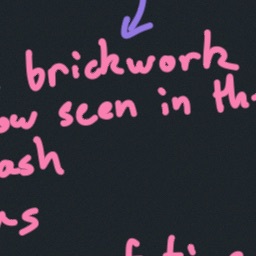 brickwork
ow seen in th
ash
rs